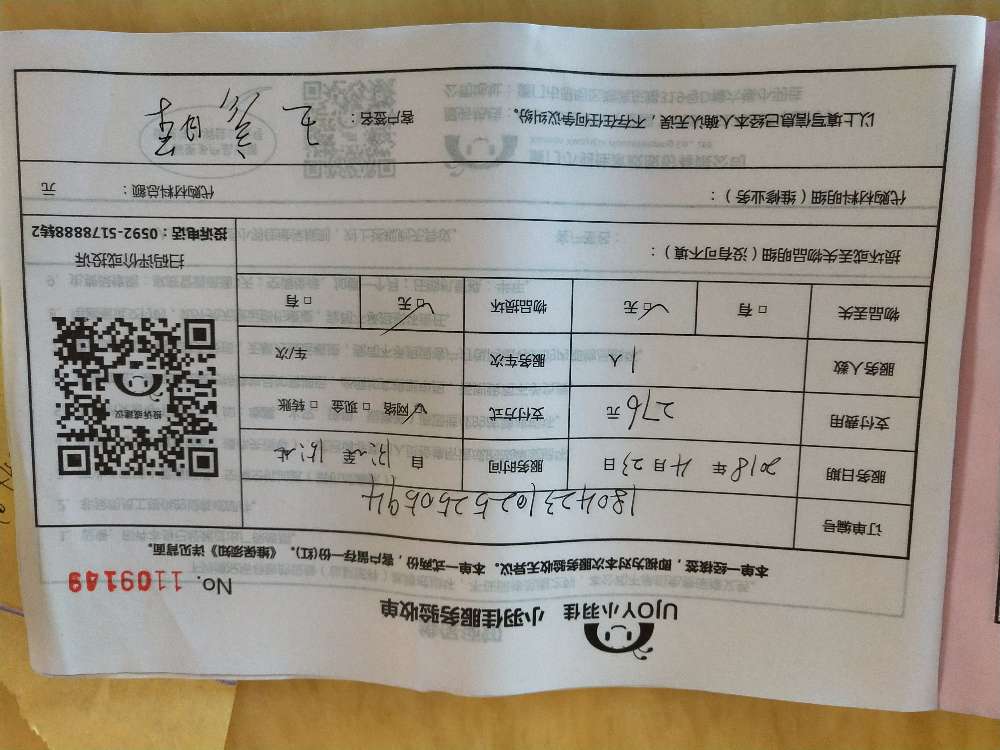 UJOY小羽佳 小羽佳服务验收单
No. 1109149
本单一经接签，即视为对本次服务验收无异议。本单一式两份，客户留存一份(红)。《维保须知》详见背面。
订单编号 1804231025250594
服务日期 2018年4月23日 服务时间 自
支付费用 276元 支付方式 ☑网络 □现金 □转账
服务人数 1人 服务车次 车/次
物品丢失 □有 ☑无 物品损坏 ☑无 □有
损坏或丢失物品明细（没有可不填）：
投诉或建议
扫码评价或投诉
投诉电话：0592-5178888转2
代购材料明细（维修业务）： 代购材料总额： 元
以上填写信息已经本人确认无误，不存在任何争议纠纷。 客户签名：